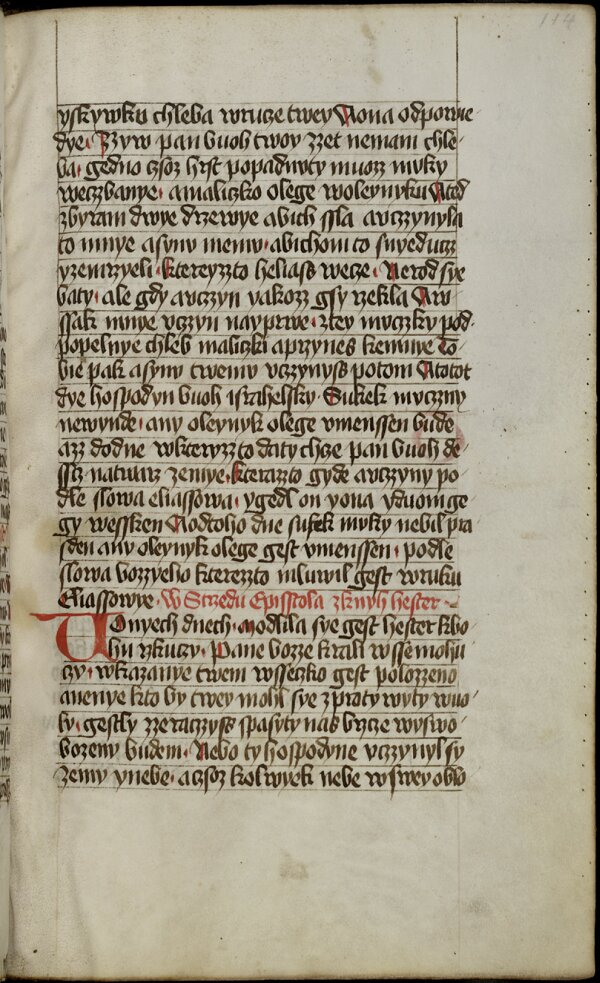 114
yskywku chleba wrucze twey Aona odpowie
dye · Zzyw pan buoh twoy zzet nemam chle
ba · gedno czsoz hrst popadnuty muoz muky
weczbanye · amaliczko olege woleynyku Ated
zbyram dwye drzewye abich ssla auczynyla
to mnye asynu memu · abichom to snyeducz
yzemrzyeli · ktereyzto heliass wecze · Nerod sye
baty · ale gdy auczyn yakozz gsy rzekla Aw
ssak mnye vczyn nayprwe · ztey muczky pod
popelnye chleb maliczki aprzynes kemnye To
bie pak asynu twemu vczynyss potom Atotot
dye hospodyn buoh israhelsky · Sukek muczny
newynde · any oleynyk olege vmenssen bude
azz dodne wkteryzzto daty chcze pan buoh de
sscz natwarz zemye · kterazzto gyde auczyny po
dle slowa eliassowa · ygedl on yona yduom ge
gy wessken Aodtoho dne sufek muky nebil pra
sden any oleynyk olege gest vmenssen · podle
slowa bozzyeho kterezzto mluwil gest wruku
Eliassowye · W Strzedu Episstola zknyh hester
Tonyech dnech · modlila sye gest hester kbo
hu rzkuczy · Pane bozze krali wssemohu
czy · wkazanye twem wsseczko gest polozzeno
anenye kto by twey mohl sye zprotywyty wuo
ly · gestly zzeraczyss spasyty nas brzcze wyswo
bozeny budem · Nebo ty hospodyne vczynyl sy
zemy ynebe · aczsoz kolwyek nebe wswey oblo